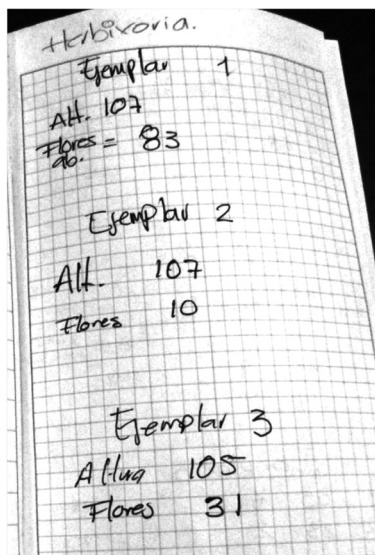 Herbivoria.
Ejemplar 1
Alt. 107
Flores = 83
ab.
Ejemplar 2
Alt. 107
Flores 10
Ejemplar 3
Altura 105
Flores 31